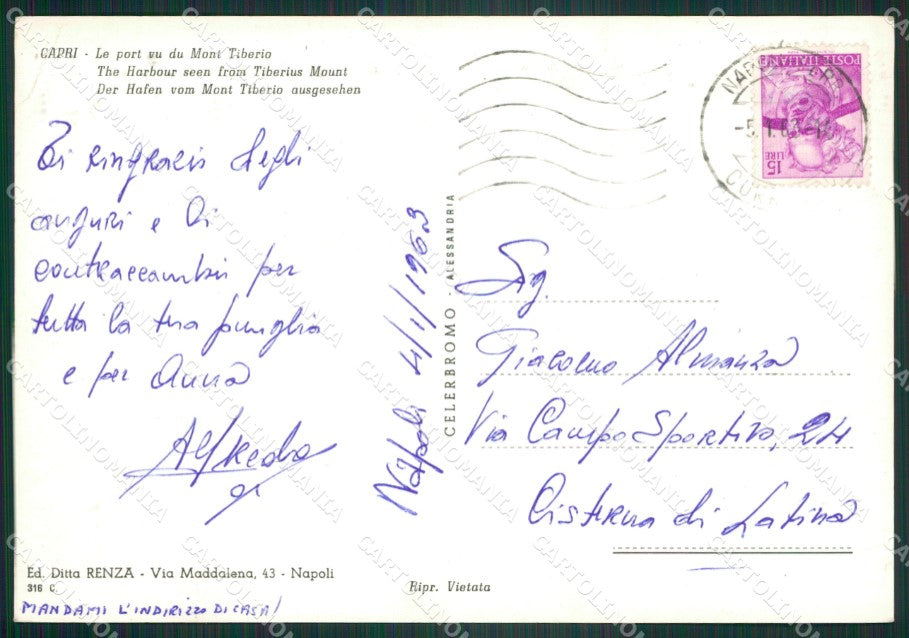 CAPRI - Le port vu du Mont Tiberio
The Harbour seen from Tiberius Mount
Der Hafen vom Mont Tiberio ausgesehen
Ti ringrazio degli
auguri e li
contraccambio per
tutta la tua famiglia
e per Anna
Alfredo
Ed. Ditta RENZA - Via Maddalena, 43 - Napoli
316 C
MANDAMI L'INDIRIZZO DI CASA!
Napoli 4/1/1963
CELERBROMO - ALESSANDRIA
Ripr. Vietata
POSTE ITALIANE
15 LIRE
-5.1.63
Sig.
Giacomo Almanza
Via Campo Sportivo, 24
Cisterna di Latina
CARTOLINOMANIA